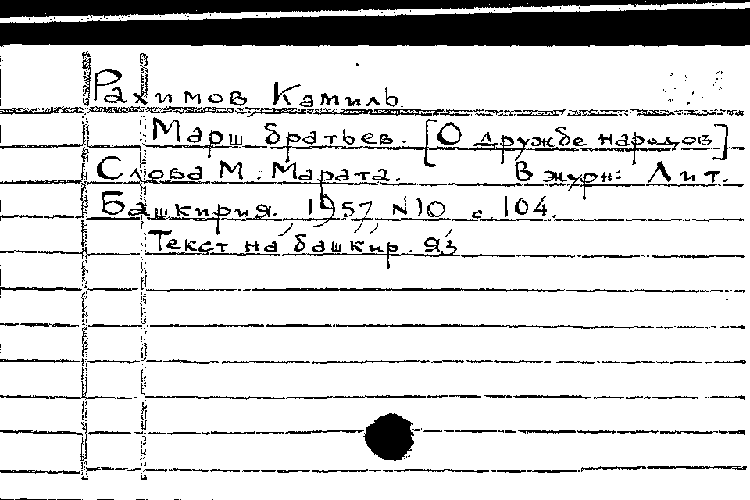 Рахимов Камиль
Марш братьев. [О дружбе народов]
Слова М. Марата. В журн: Лит.
Башкирия. 1957 №10 с. 104.
Текст на башкир. яз